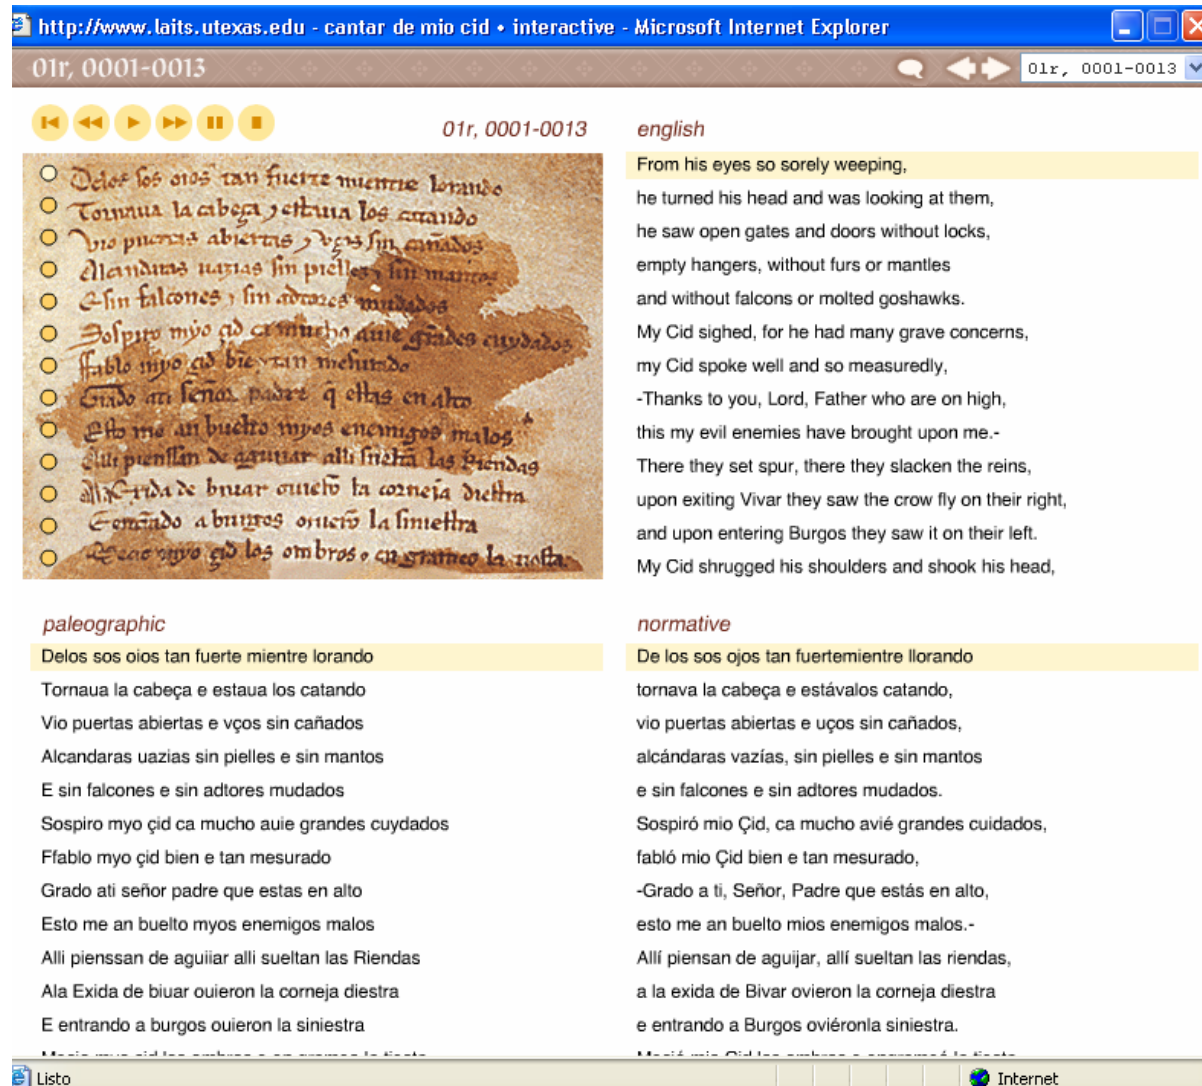 http://www.laits.utexas.edu - cantar de mio cid • interactive - Microsoft Internet Explorer
01r, 0001-0013
01r, 0001-0013
01r, 0001-0013
Delos sos oios tan fuerte mientre lorando
Tornaua la cabeça e estaua los catando
Vio puertas abiertas e vços sin cañados
Alcandaras uazias sin pielles e sin mantos
E sin falcones e sin adtores mudados
Sospiro myo çid ca mucho auie grãdes cuydados
ffablo myo çid bien e tan mesurado
Grado ati señor padre q estas en alto
Esto me an buelto myos enemigos malos
Alli pienssan de aguiiar alli sueltã las Riendas
Ala Exida de biuar ouierõ la corneja diestra
E entrãdo a burgos ouierõ la siniestra
myo çid los ombros e en grameo la
english
From his eyes so sorely weeping,
he turned his head and was looking at them,
he saw open gates and doors without locks,
empty hangers, without furs or mantles
and without falcons or molted goshawks.
My Cid sighed, for he had many grave concerns,
my Cid spoke well and so measuredly,
-Thanks to you, Lord, Father who are on high,
this my evil enemies have brought upon me.-
There they set spur, there they slacken the reins,
upon exiting Vivar they saw the crow fly on their right,
and upon entering Burgos they saw it on their left.
My Cid shrugged his shoulders and shook his head,
paleographic
Delos sos oios tan fuerte mientre lorando
Tornaua la cabeça e estaua los catando
Vio puertas abiertas e vços sin cañados
Alcandaras uazias sin pielles e sin mantos
E sin falcones e sin adtores mudados
Sospiro myo çid ca mucho auie grandes cuydados
Ffablo myo çid bien e tan mesurado
Grado ati señor padre que estas en alto
Esto me an buelto myos enemigos malos
Alli pienssan de aguiiar alli sueltan las Riendas
Ala Exida de biuar ouieron la corneja diestra
E entrando a burgos ouieron la siniestra
normative
De los sos ojos tan fuertemientre llorando
tornava la cabeça e estávalos catando,
vio puertas abiertas e uços sin cañados,
alcándaras vazías, sin pielles e sin mantos
e sin falcones e sin adtores mudados.
Sospiró mio Çid, ca mucho avié grandes cuidados,
fabló mio Çid bien e tan mesurado,
-Grado a ti, Señor, Padre que estás en alto,
esto me an buelto mios enemigos malos.-
Allí piensan de aguijar, allí sueltan las riendas,
a la exida de Bivar ovieron la corneja diestra
e entrando a Burgos oviéronla siniestra.
Listo
Internet